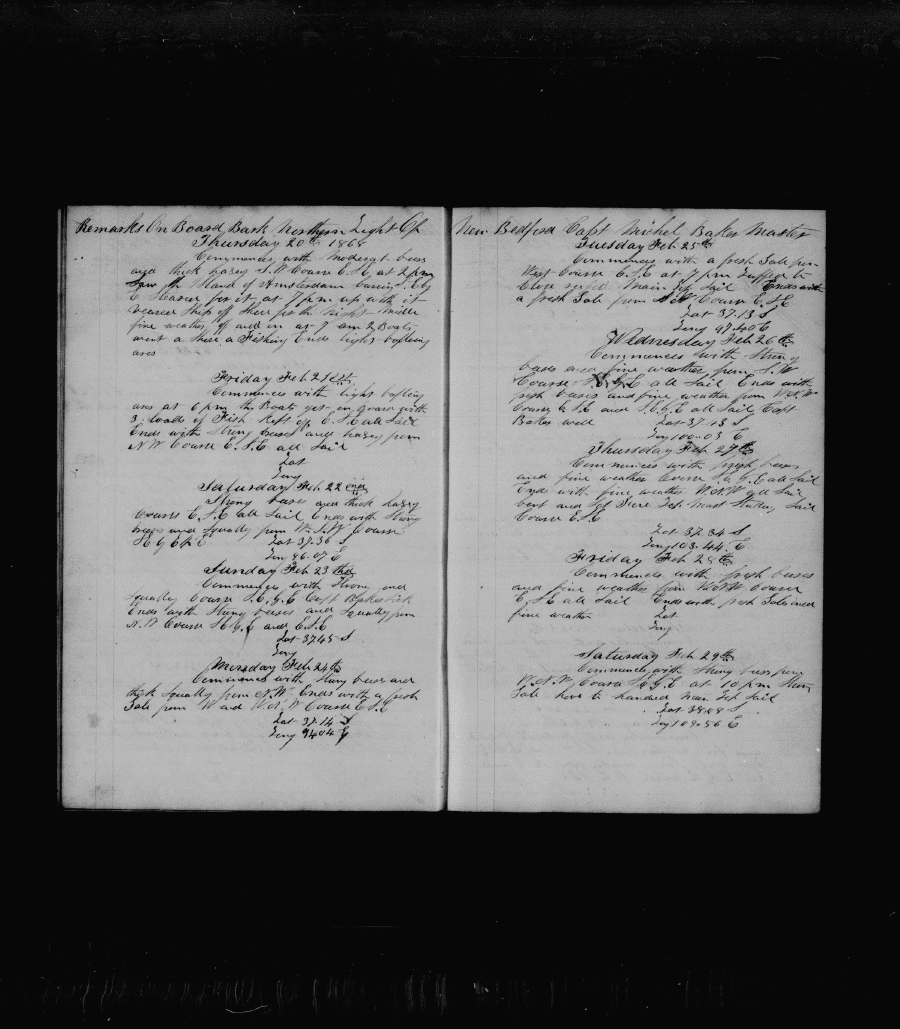 Remarks On Board Bark Northern Light Of
Thursday 20th 1868
Commences with moderat bses
and thick hazey Course E.S.E at 2 pm
Saw the Island of Amsterdam baring
for it at 7 pm up with it
weared ship of there for the night Midle
fine weather of and on at 7 am 2 Boats
went a there a Fishing Ends light bafling
ares
Friday Feb 21st
Commences with light bafling
ars at 6 pm the Boats got on board with
3 loads of Fish Kept of E.S.E all Sail
Ends with Strong beses and hazey from
NW Course E.S.E all Sail
Lat
Long
Saturday Feb 22 end
Strong beses and thick hazey
Course E.S.E all Sail Ends with Strong
beses and squally from W.S.W Course
Lat 37.36 S
Long 86.07 E
Sunday Feb 23 thrd
Commences with Strong and
squally Course S.E.b.E Capt Baker sick
Ends with Strong beses and squally from
N.W Course S.E.b.E and E.S.E
Lat 37.45 S
Long
Monday Feb 24th
Commences with Strong beses and
thick squally from N.W. Ends with a fresh
Gale from W and W.N.W Course E.S.E
Lat 37.14 S
Long 94.04 E
New Bedford Capt Michel Baker Master
Tuesday Feb 25th
Commences with a fresh Gale from
West Course E.S.E at 7 pm
Close reefed Main Top Sail Ends with
a fresh Gale from S.W Course E.S.E
Lat 37.13 S
Long 97.40 E
Wednesday Feb 26th
Commences with Strong
beses and fine weather from S.W
Course S.E.b.E all Sail Ends with
fresh beses and fine weather from W.N.W
Course E.S.E and S.E.b.E all Sail Capt
Baker well Lat 37.13 S
Long 100.03 E
Thursday Feb 27th
Commences with fresh beses
and fine weather Course S.E.b.E all Sail
Ends with fine weather W.N.W all Sail
bent and Set Fore Top Mast Studing Sail
Course E.S.E
Lat 37.34 S
Long 103.44 E
Friday Feb 28th
Commences with fresh beses
and fine weather from W.N.W Course
E.S.E all Sail Ends with fresh Gale and
fine weather Lat
Long
Saturday Feb 29th
Commences with Strong beses from
W.N.W Course S.E.b.E at 10 pm Strong
Gale hove to handed main Top Sail
Lat 38.08 S
Long 109.56 E